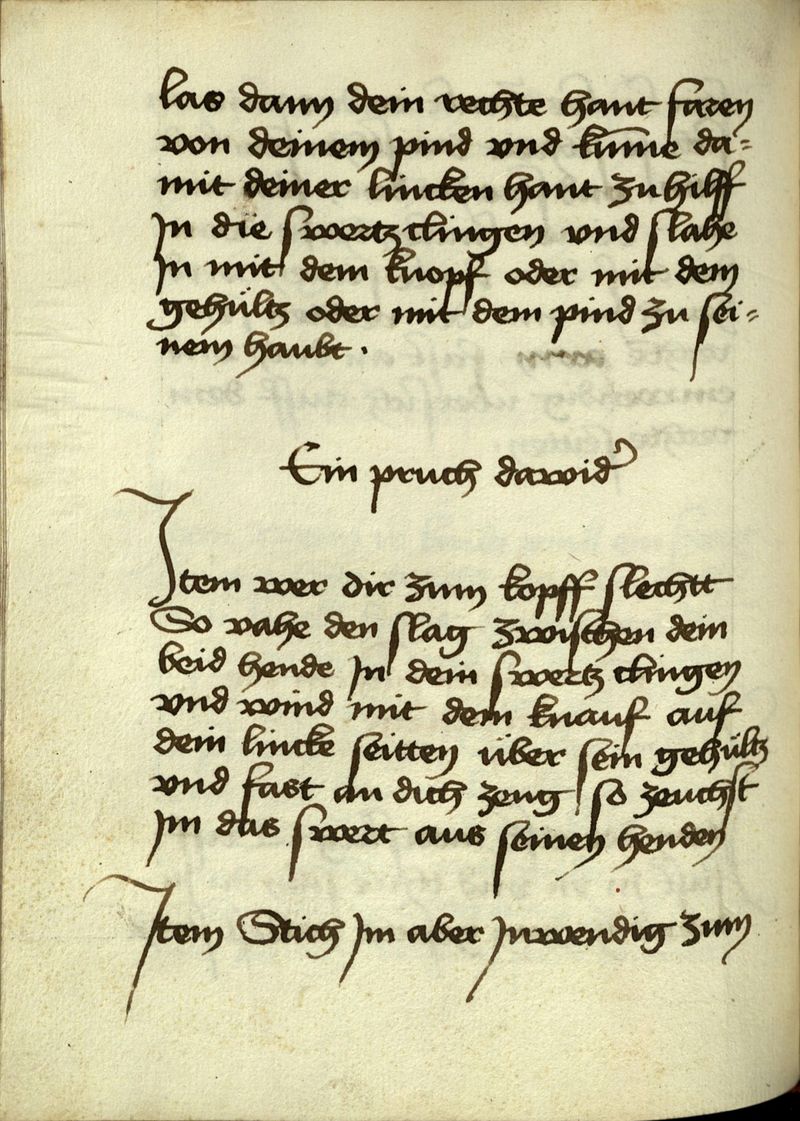 las dann dein rechte hant faren
von deinem pind vnd kum̄e da=
mit deiner lincken hant zu hilff
Jn die swertzclingen vnd slahe
Jn mit dem knopf oder mit dem
gehültz oder mit dem pind zu sei=
nem haubt .
Ein pruch dawid᾽
Jtem wer dir zum kopff slechtt
So vahe den slag zwischen dein
beid hende Jn dein swertz clingen
vnd wind mit dem knauf auf
dein lincke seitten über sein gehültz
vnd fast an dich zeug so zeuchst
Jm das swert aus seinen henden
Jtem Stich Jm aber Jnwendig zum